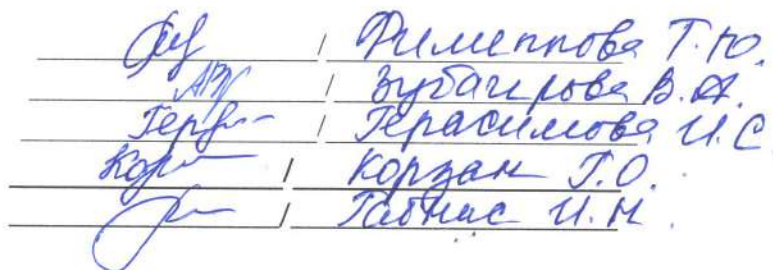 / Филиппова Т.Ю.
/ Зубагирова В.А.
/ Герасимова И.С.
/ Корзан Г.О.
/ И.Н.